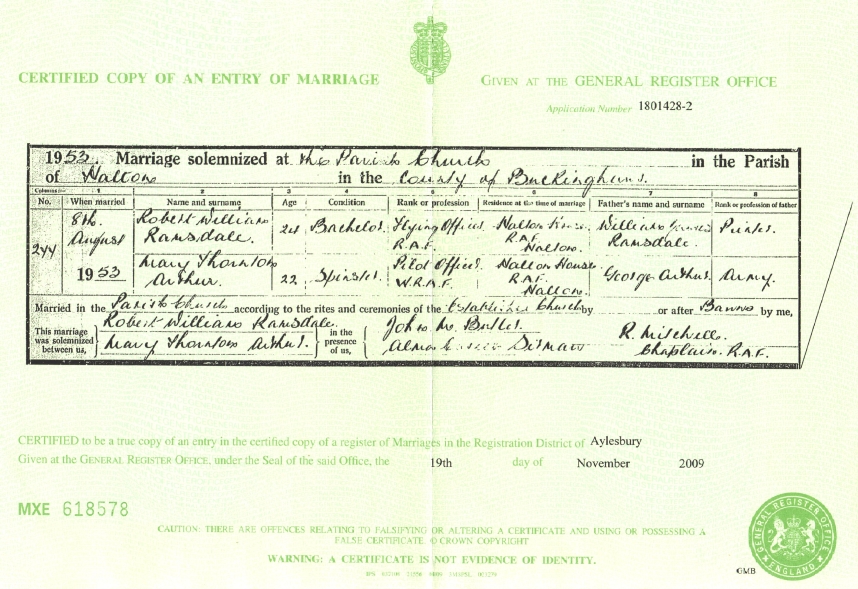 CERTIFIED COPY OF AN ENTRY OF MARRIAGE
GIVEN AT THE GENERAL REGISTER OFFICE
Application Number 1801428-2
1953. Marriage solemnized at the Parish Church in the Parish
of Halton in the County of Buckingham.
Columns:— 1 2 3 4 5 6 7 8
No. When married Name and surname Age Condition Rank or profession Residence at the time of marriage Father's name and surname Rank or profession of father
244 8th. August 1953
Robert William Ramsdale. 24 Bachelor Flying Officer R.A.F. Halton House R.A.F. Halton. William Ramsdale. Printer.
Mary Thornton Arthur. 22 Spinster. Pilot Officer. W.R.A.F. Halton House R.A.F. Halton. George Arthur. Army.
Married in the Parish Church according to the rites and ceremonies of the Established Church by or after Banns by me,
This marriage was solemnized between us, Robert William Ramsdale. Mary Thornton Arthur. in the presence of us, John Butler. Alma R. Mitchell. Chaplain. R.A.F.
CERTIFIED to be a true copy of an entry in the certified copy of a register of Marriages in the Registration District of Aylesbury
Given at the GENERAL REGISTER OFFICE, under the Seal of the said Office, the 19th day of November 2009
MXE 618578
CAUTION: THERE ARE OFFENCES RELATING TO FALSIFYING OR ALTERING A CERTIFICATE AND USING OR POSSESSING A
FALSE CERTIFICATE. © CROWN COPYRIGHT
WARNING: A CERTIFICATE IS NOT EVIDENCE OF IDENTITY.
GENERAL REGISTER OFFICE
ENGLAND
GMB